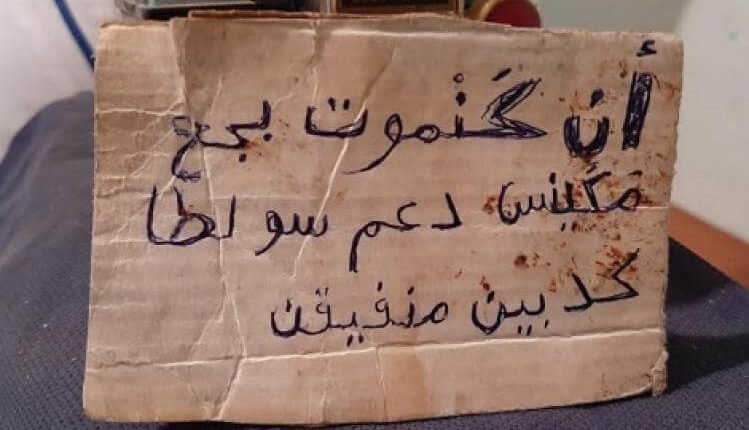 أن كَنْموت بجع
مكينس دعم سولطا
كدبين منفيقن